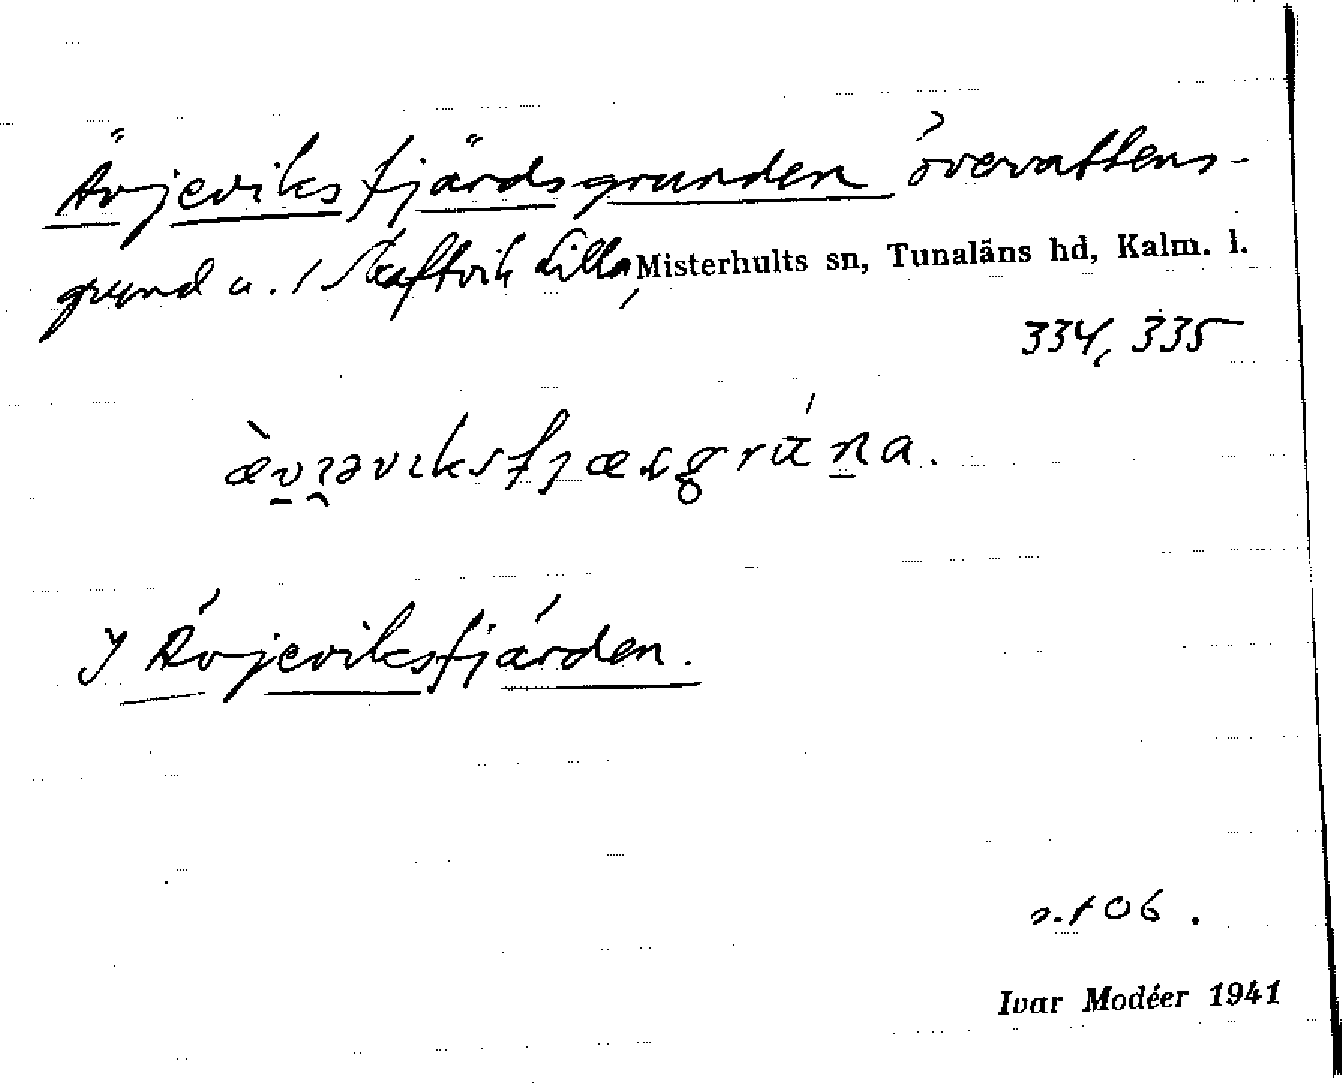 Ävjeviksfjärdsgrunden övervattens-
grund u. 1 Skaftvik Lilla, Misterhults sn, Tunaläns hd, Kalm. l.
334, 335
I Ävjeviksfjärden.
s. 106.
Ivar Modéer 1941